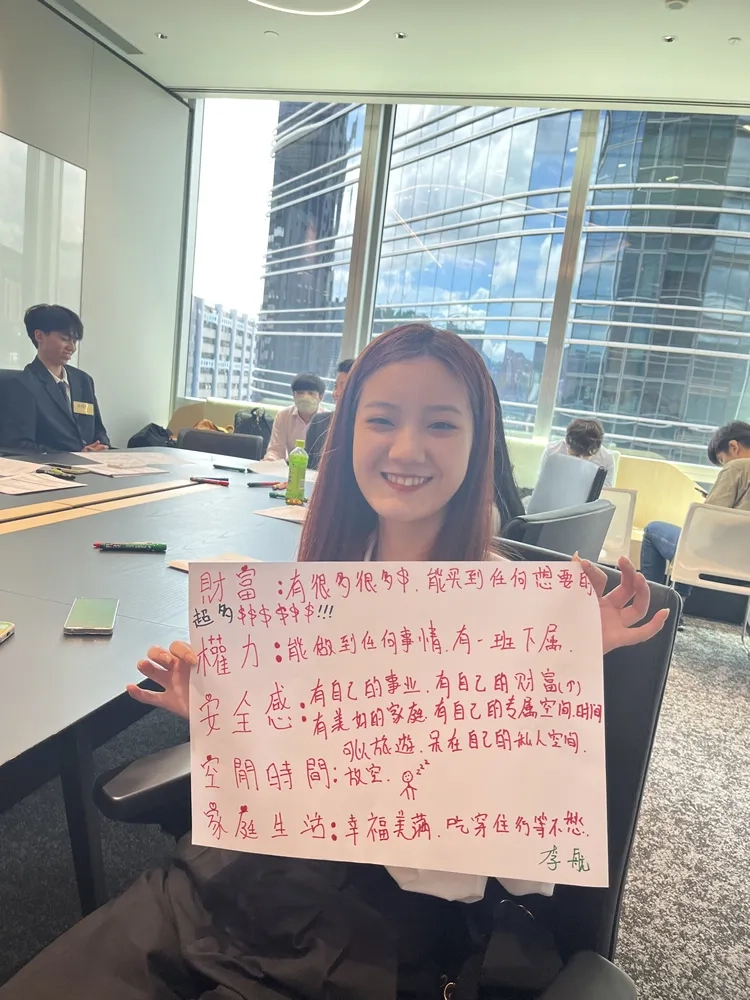 財富:有很多很多$.能买到任何想要的
超多$$$$$$!!!
權力:能做到任何事情.有一班下属.
安全感:有自己的事业.有自己的财富(个)
有美好的家庭.有自己的专属空间.时间
可以旅遊.呆在自己的私人空间.
空閒時間:放空. zzz
家庭生活:幸福美满.吃穿住行等不愁.
李航